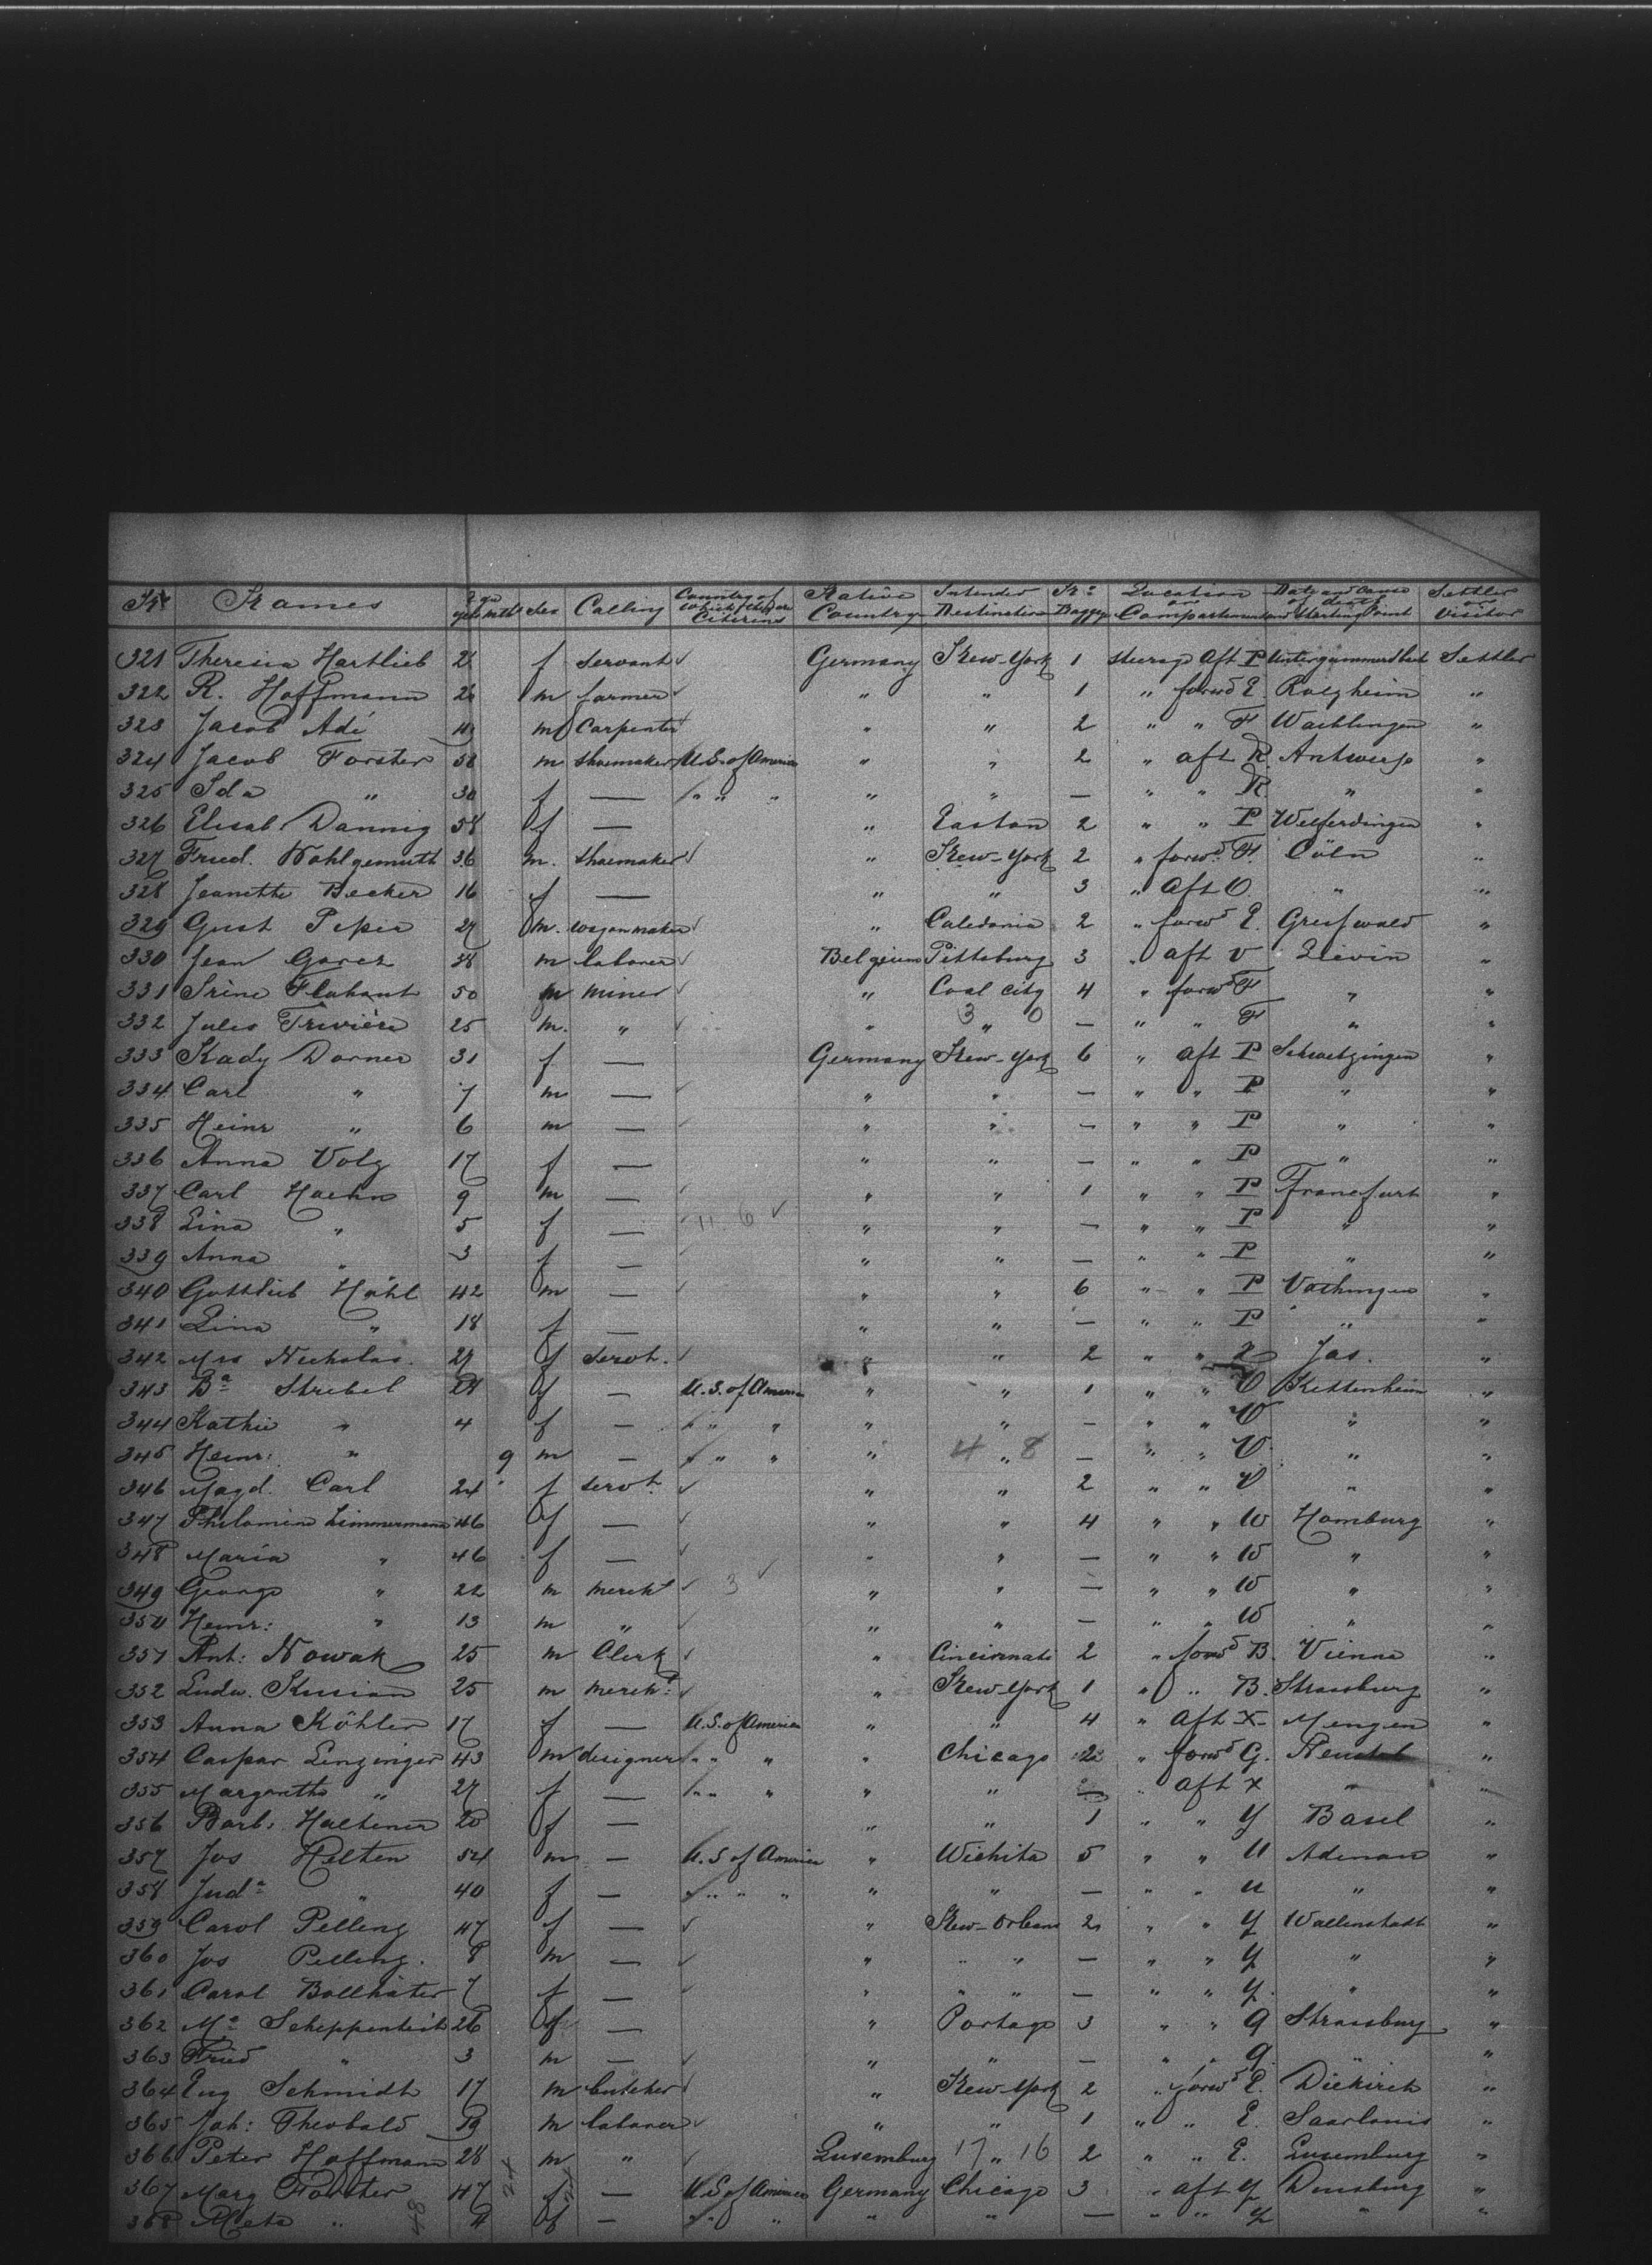 No Names Age yrs mths Sex Calling Country of which they are Citizens Native Country Intended Destination No Baggage Location Compartment Date and Cause of death and Starting Point Settler or Visitor
321 Theresia Hartlieb 21 f servant ✓ Germany New-York 1 steerage aft P Settler
322 R. Hoffmann 26 m farmer ✓ " " 1 " forwd E. "
323 Jacob Adé m Carpenter ✓ " " 2 " " F Waiblingen "
324 Jacob Forster 58 m shoemaker U.S. of America " " 2 " aft R. Antwerp "
325 Ida " 30 f — " " " " " — " " R. " "
326 Elisab. Dannig 58 f — " Easton 2 " " P Welferdingen "
327 Fried. Wohlgemuth 36 m. shoemaker ✓ " New-York 2 " forwd F. Cöln "
328 Jeanette Becker 16 f — " " 3 " aft O " "
329 Gust Pepin 27 m. wagonmaker ✓ " Caledonia 2 " forwd E. Greifswald "
330 Jean Garez 38 m laborer ✓ Belgium Pittsburg 3 " aft V Lievin "
331 Irène Flahant 50 m miner ✓ " Coal City 4 " forwd F " "
332 Jules Trivière 25 m. " ✓ " 3 " 0 — " " F " "
333 Kady Dorner 31 f — Germany New-York 6 " aft P Schwetzingen "
334 Carl " 7 m — ✓ " " — " " P " "
335 Heinr " 6 m — ✓ " " — " " P " "
336 Anna Volz 17 f — " " — " " P " "
337 Carl Haehn 9 m — ✓ " " 1 " " P Francfurt "
338 Lina " 5 f — ✓ 11. 6 ✓ " " — " " P " "
339 Anna " 3 f — ✓ " " — " " P " "
340 Gottlieb Hähl 42 m — ✓ " " 6 " " P "
341 Lina " 18 f — " " — " " P " "
342 Mrs Nicholas. 27 f servt. ✓ " " 2 " " Jas. "
343 Ba Strebel 28 f — U.S. of America " " 1 " " V Kettenheim "
344 Kathie " 4 f — " " " " " — " " V " "
345 Heinr: " 9 m — " " " " 4 " 8 — " " V " "
346 Magd. Carl 24 f servt. ✓ " " 2 " " V " "
347 Philomine Zimmermann 46 f — ✓ " " 4 " " W Homburg "
348 Maria " 46 f — ✓ " " — " " W " "
349 George " 22 m mercht ✓ 3 ✓ " " — " " W " "
350 Heinr: " 13 m " ✓ " " — " " W " "
351 Ant: Nowak 25 m Clerk ✓ " Cincinnati 2 " forwd B. Vienna "
352 Ludw. Kusian 25 m mercht: ✓ " New-York 1 " " B. Strassburg "
353 Anna Köhler 17 f — U.S. of America " " 4 " aft X Mengen "
354 Caspar Linzinger 43 m designer " " " " Chicago 2 " forwd G. "
355 Margareth " 27 f — " " " " " — " aft X " "
356 Barb: Haltener 20 f — " " 1 " " Y Basel "
357 Jos Hilten 54 m — U.S. of America " Wichita 5 " " U Adenau "
358 Juda " 40 f — " " " " " — " " U " "
359 Carol Pelleng 47 f — ✓ " New-Orleans 2 " " Y Wallenstadt "
360 Jos Pelleng. 8 m — ✓ " " " — " " Y " "
361 Carol Bollhäter 7 f — ✓ " " " — " " Y. " "
362 Ma 26 f — " Portage 3 " " Q Strassburg "
363 Fried " 3 m — ✓ " " — " " Q " "
364 Eug Schmidt 17 m butcher ✓ " New-York 2 " forwd E. Diekirch "
365 Joh: Theobald 59 m laborer ✓ " " 1 " " E. Saarlouis "
366 Peter Hoffmann 28 m " ✓ Luxemburg 17 " 16 2 " " E. Luxemburg "
367 Marg Forster 47 f — U.S of America Germany Chicago 3 " aft Y Duisburg "
368 Meta " f — " " " " " — " " Y " "